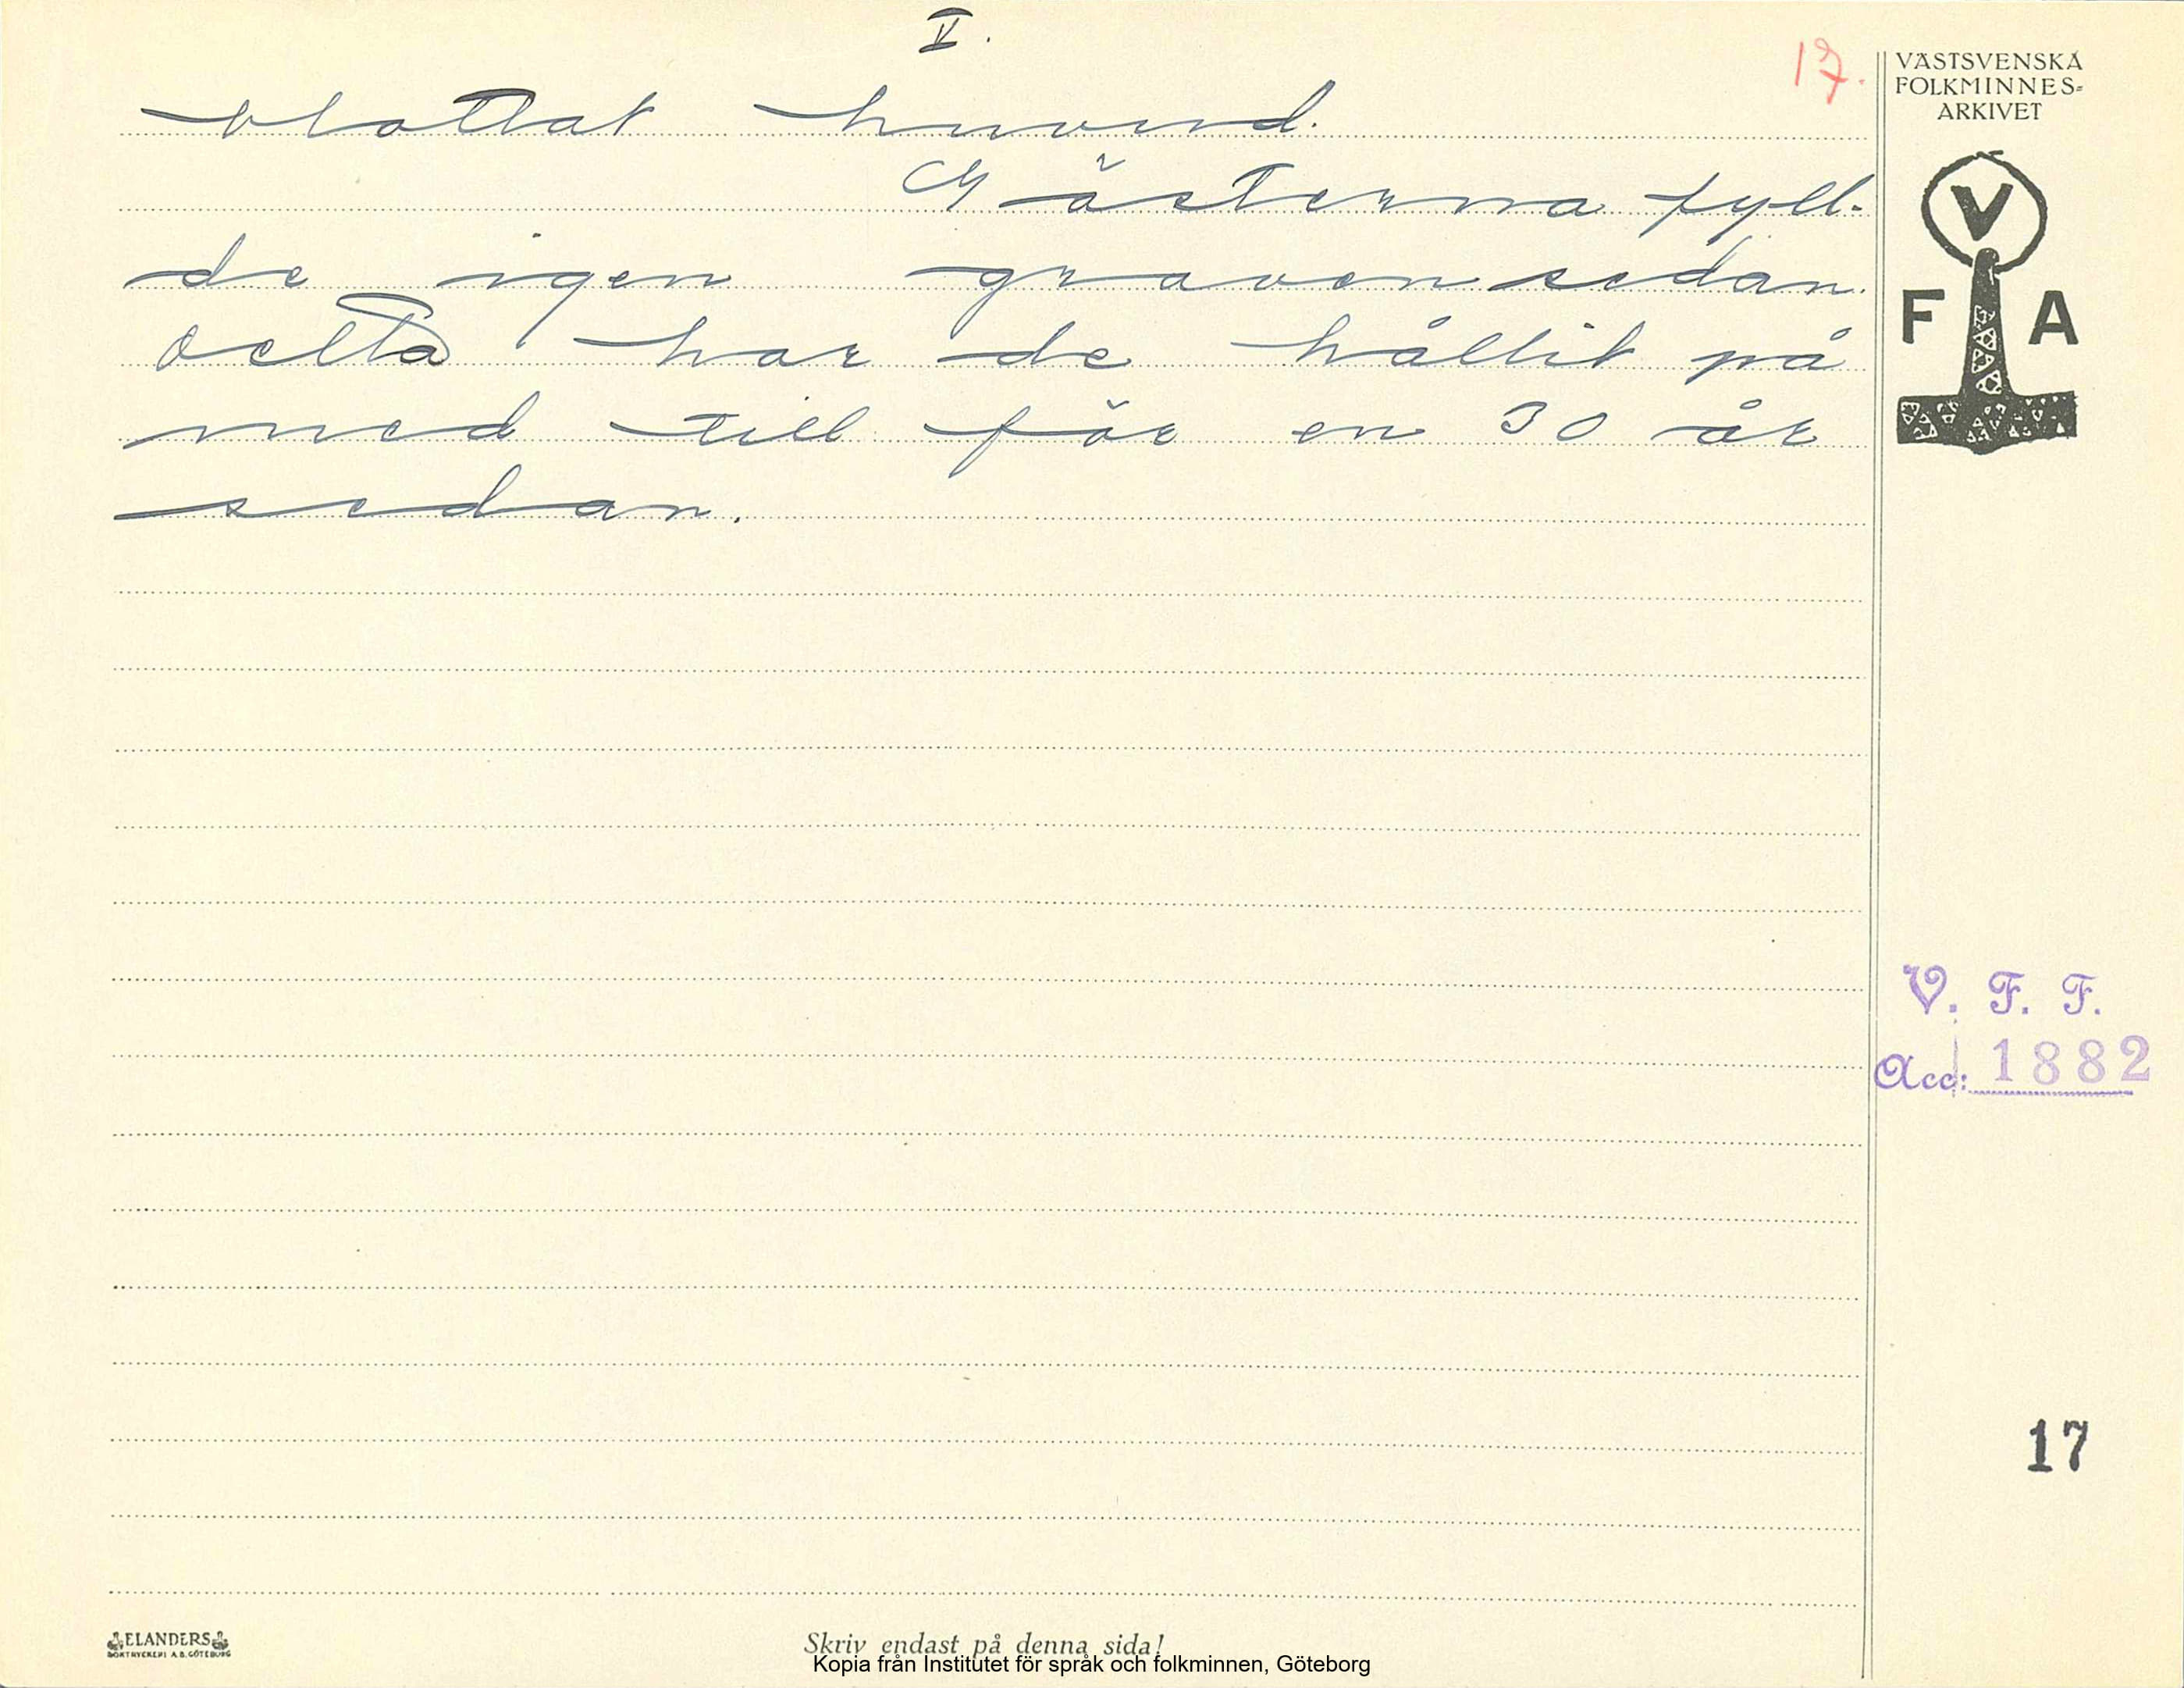 V.
17.
blottat huvud.
Gästerna fyll-
de igen graven sedan.
Detta har de hållit på
med till för en 30 år
sedan.
VÄSTSVENSKA
FOLKMINNES=
ARKIVET
V
F A
V. F. F.
Acc: 1882
17
ELANDERS
BOKTRYCKERI A.B. GÖTEBORG
Skriv endast på denna sida!
Kopia från Institutet för språk och folkminnen, Göteborg